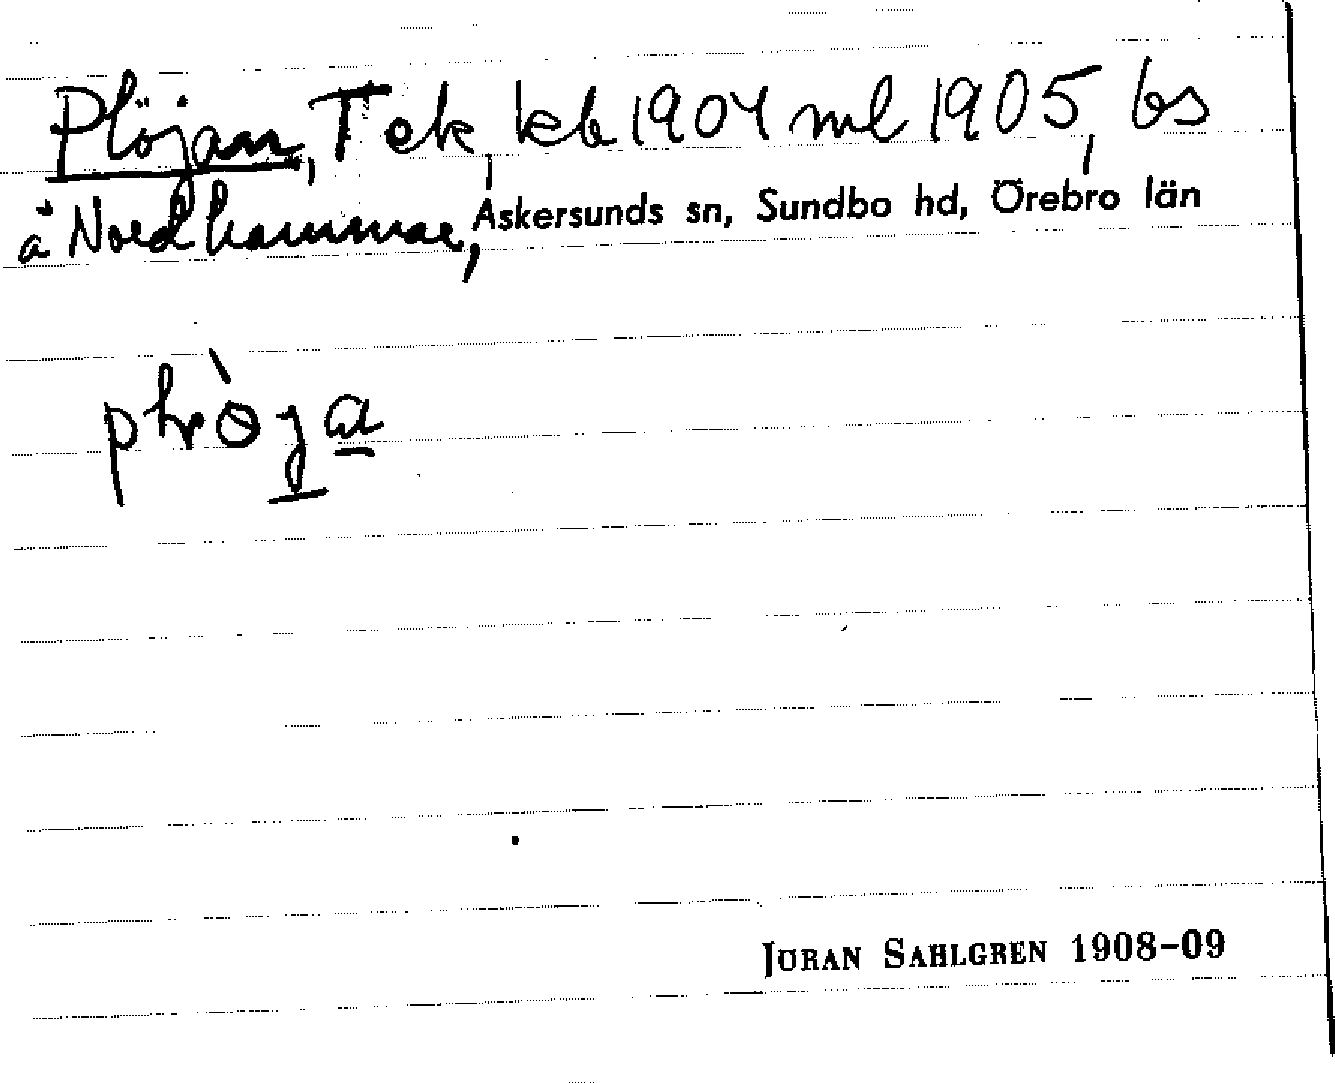 Plöjan, T ek, kb 1904 ml 1905, bs
å Nordhammar, Askersunds sn, Sundbo hd, Örebro län
JÖRAN SAHLGREN 1908-09